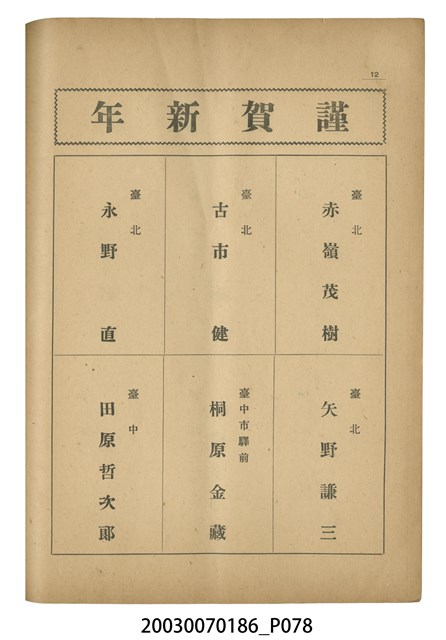 12
謹賀新年
臺北
赤嶺茂樹
臺北
古市健
臺北
永野直
臺北
矢野謙三
臺中市驛前
桐原金藏
臺中
田原哲次郎
20030070186_P078